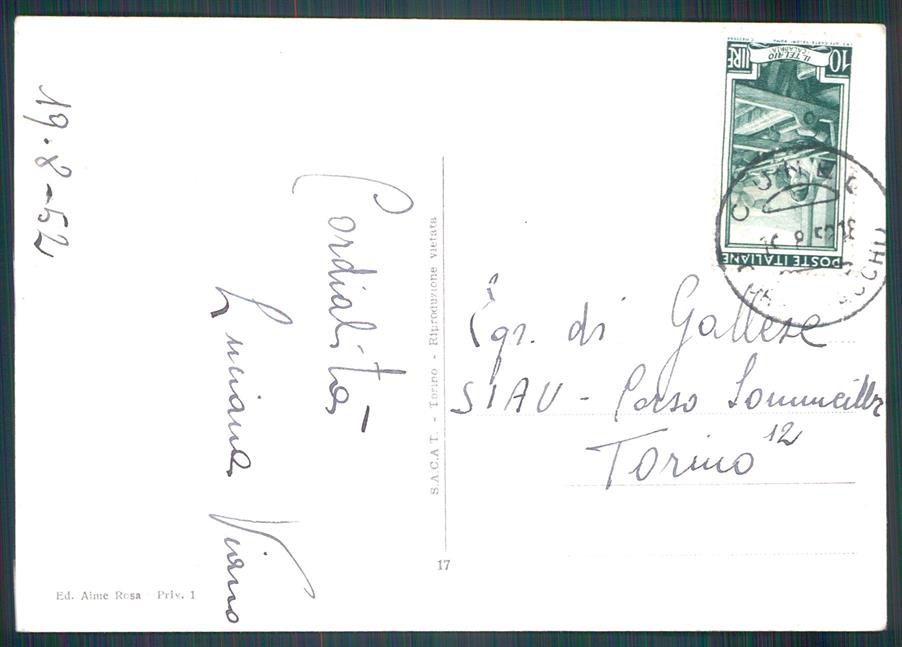 19-8-52
Cordialità
Luciana Viano
Ed. Aime Rosa Priv. 1
S.A.C.A.T. - Torino - Riproduzione vietata
17
10 LIRE
IL TELAIO
CALABRIA
POSTE ITALIANE
CUNEO
Egr. di Gallese
SIAU - Corso Sommeiller
12
Torino